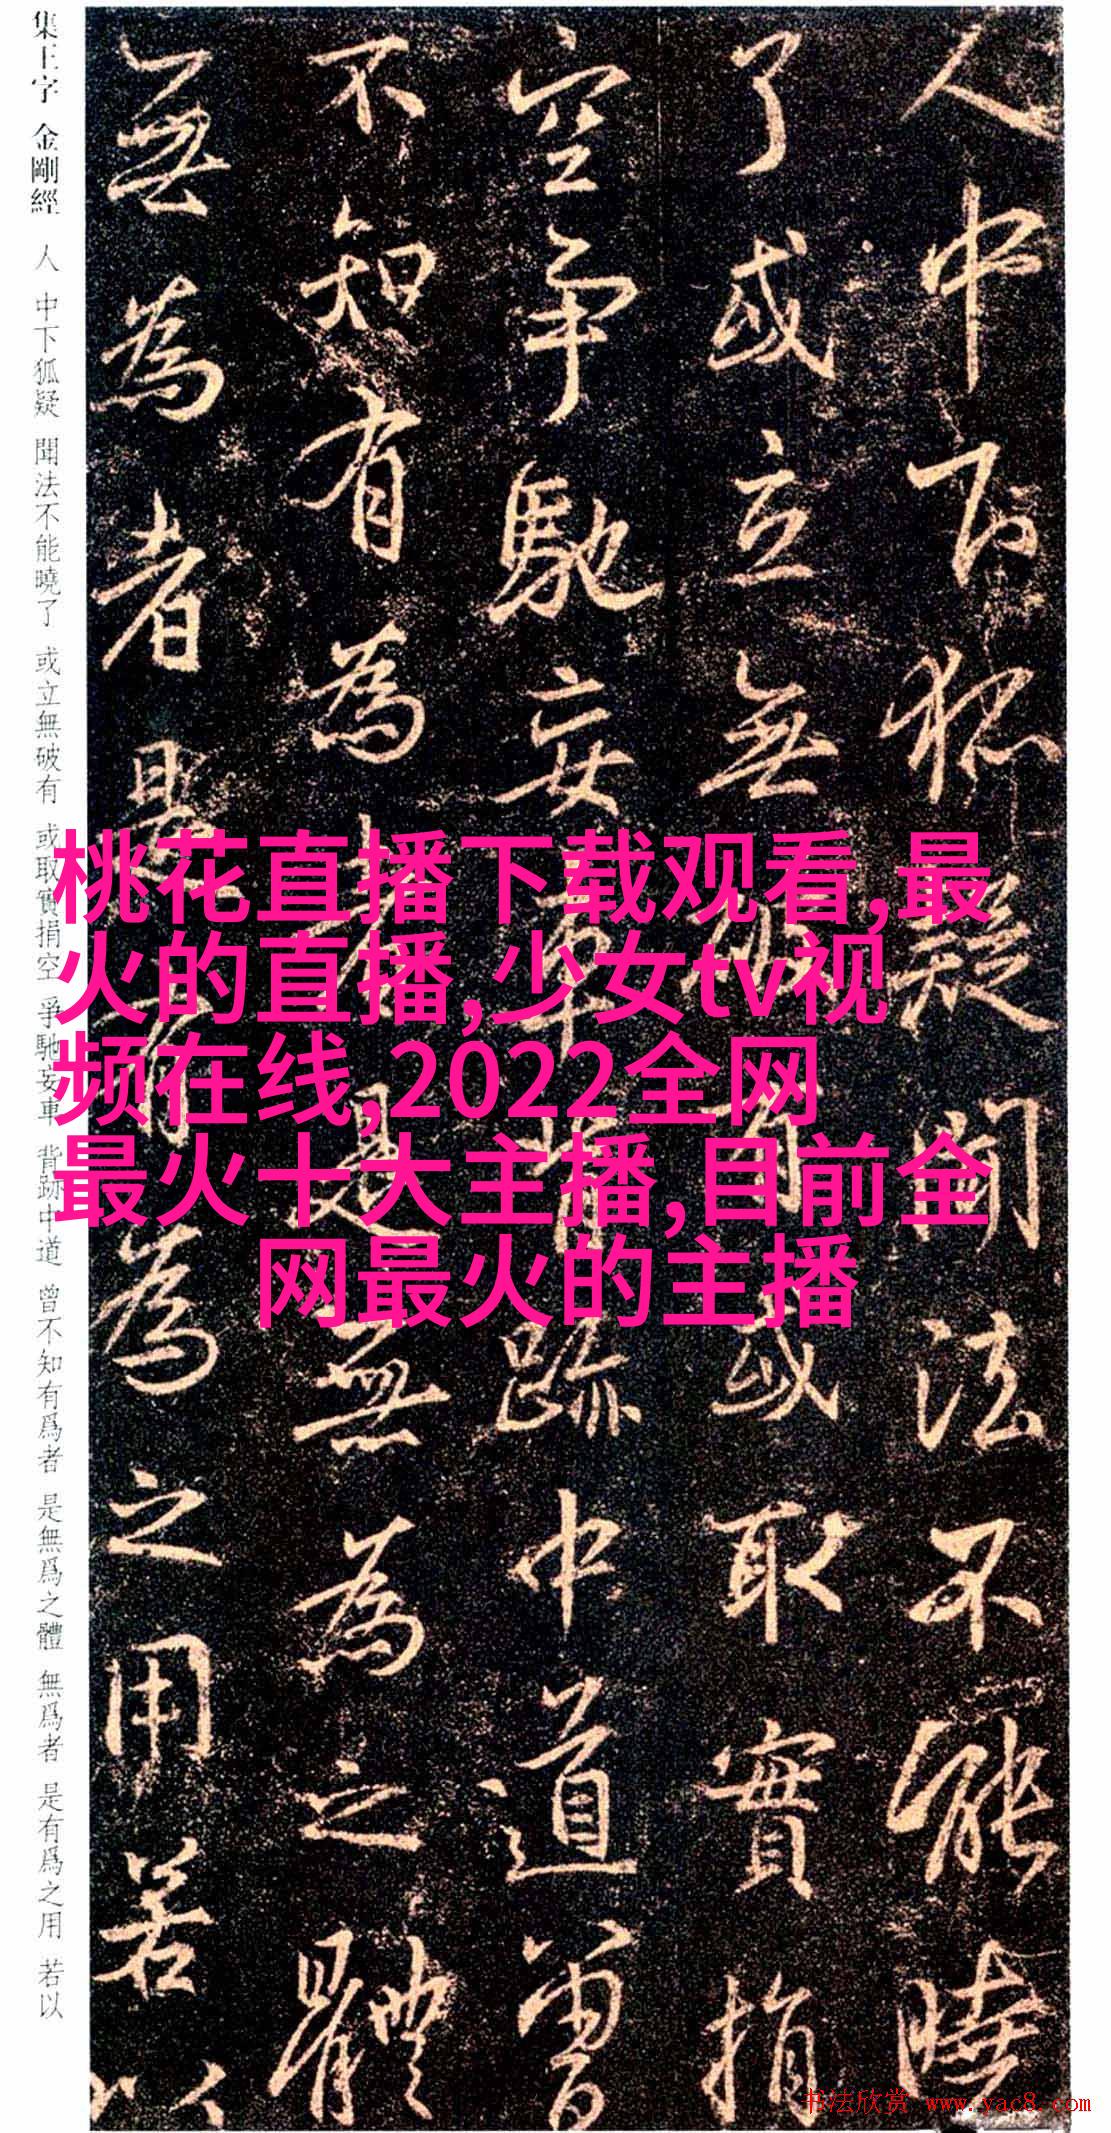 集王字 金剛經 人 中下狐疑 聞法不能曉了 或立無破有 或取實捐空 爭馳妄車 背跡中道 曾不知有爲者 是無爲之體 無爲者 是有爲之用 若以
人中下狐疑聞法不能曉
了或立無破有或取實捐
空爭馳妄車背跡中道曾
不知有為者是無為之體
無為者是有為之用若以
桃花直播下载观看,最
火的直播,少女tv视
频在线,2022全网
最火十大主播,目前全
网最火的主播
书法欣赏 www.yac8.com